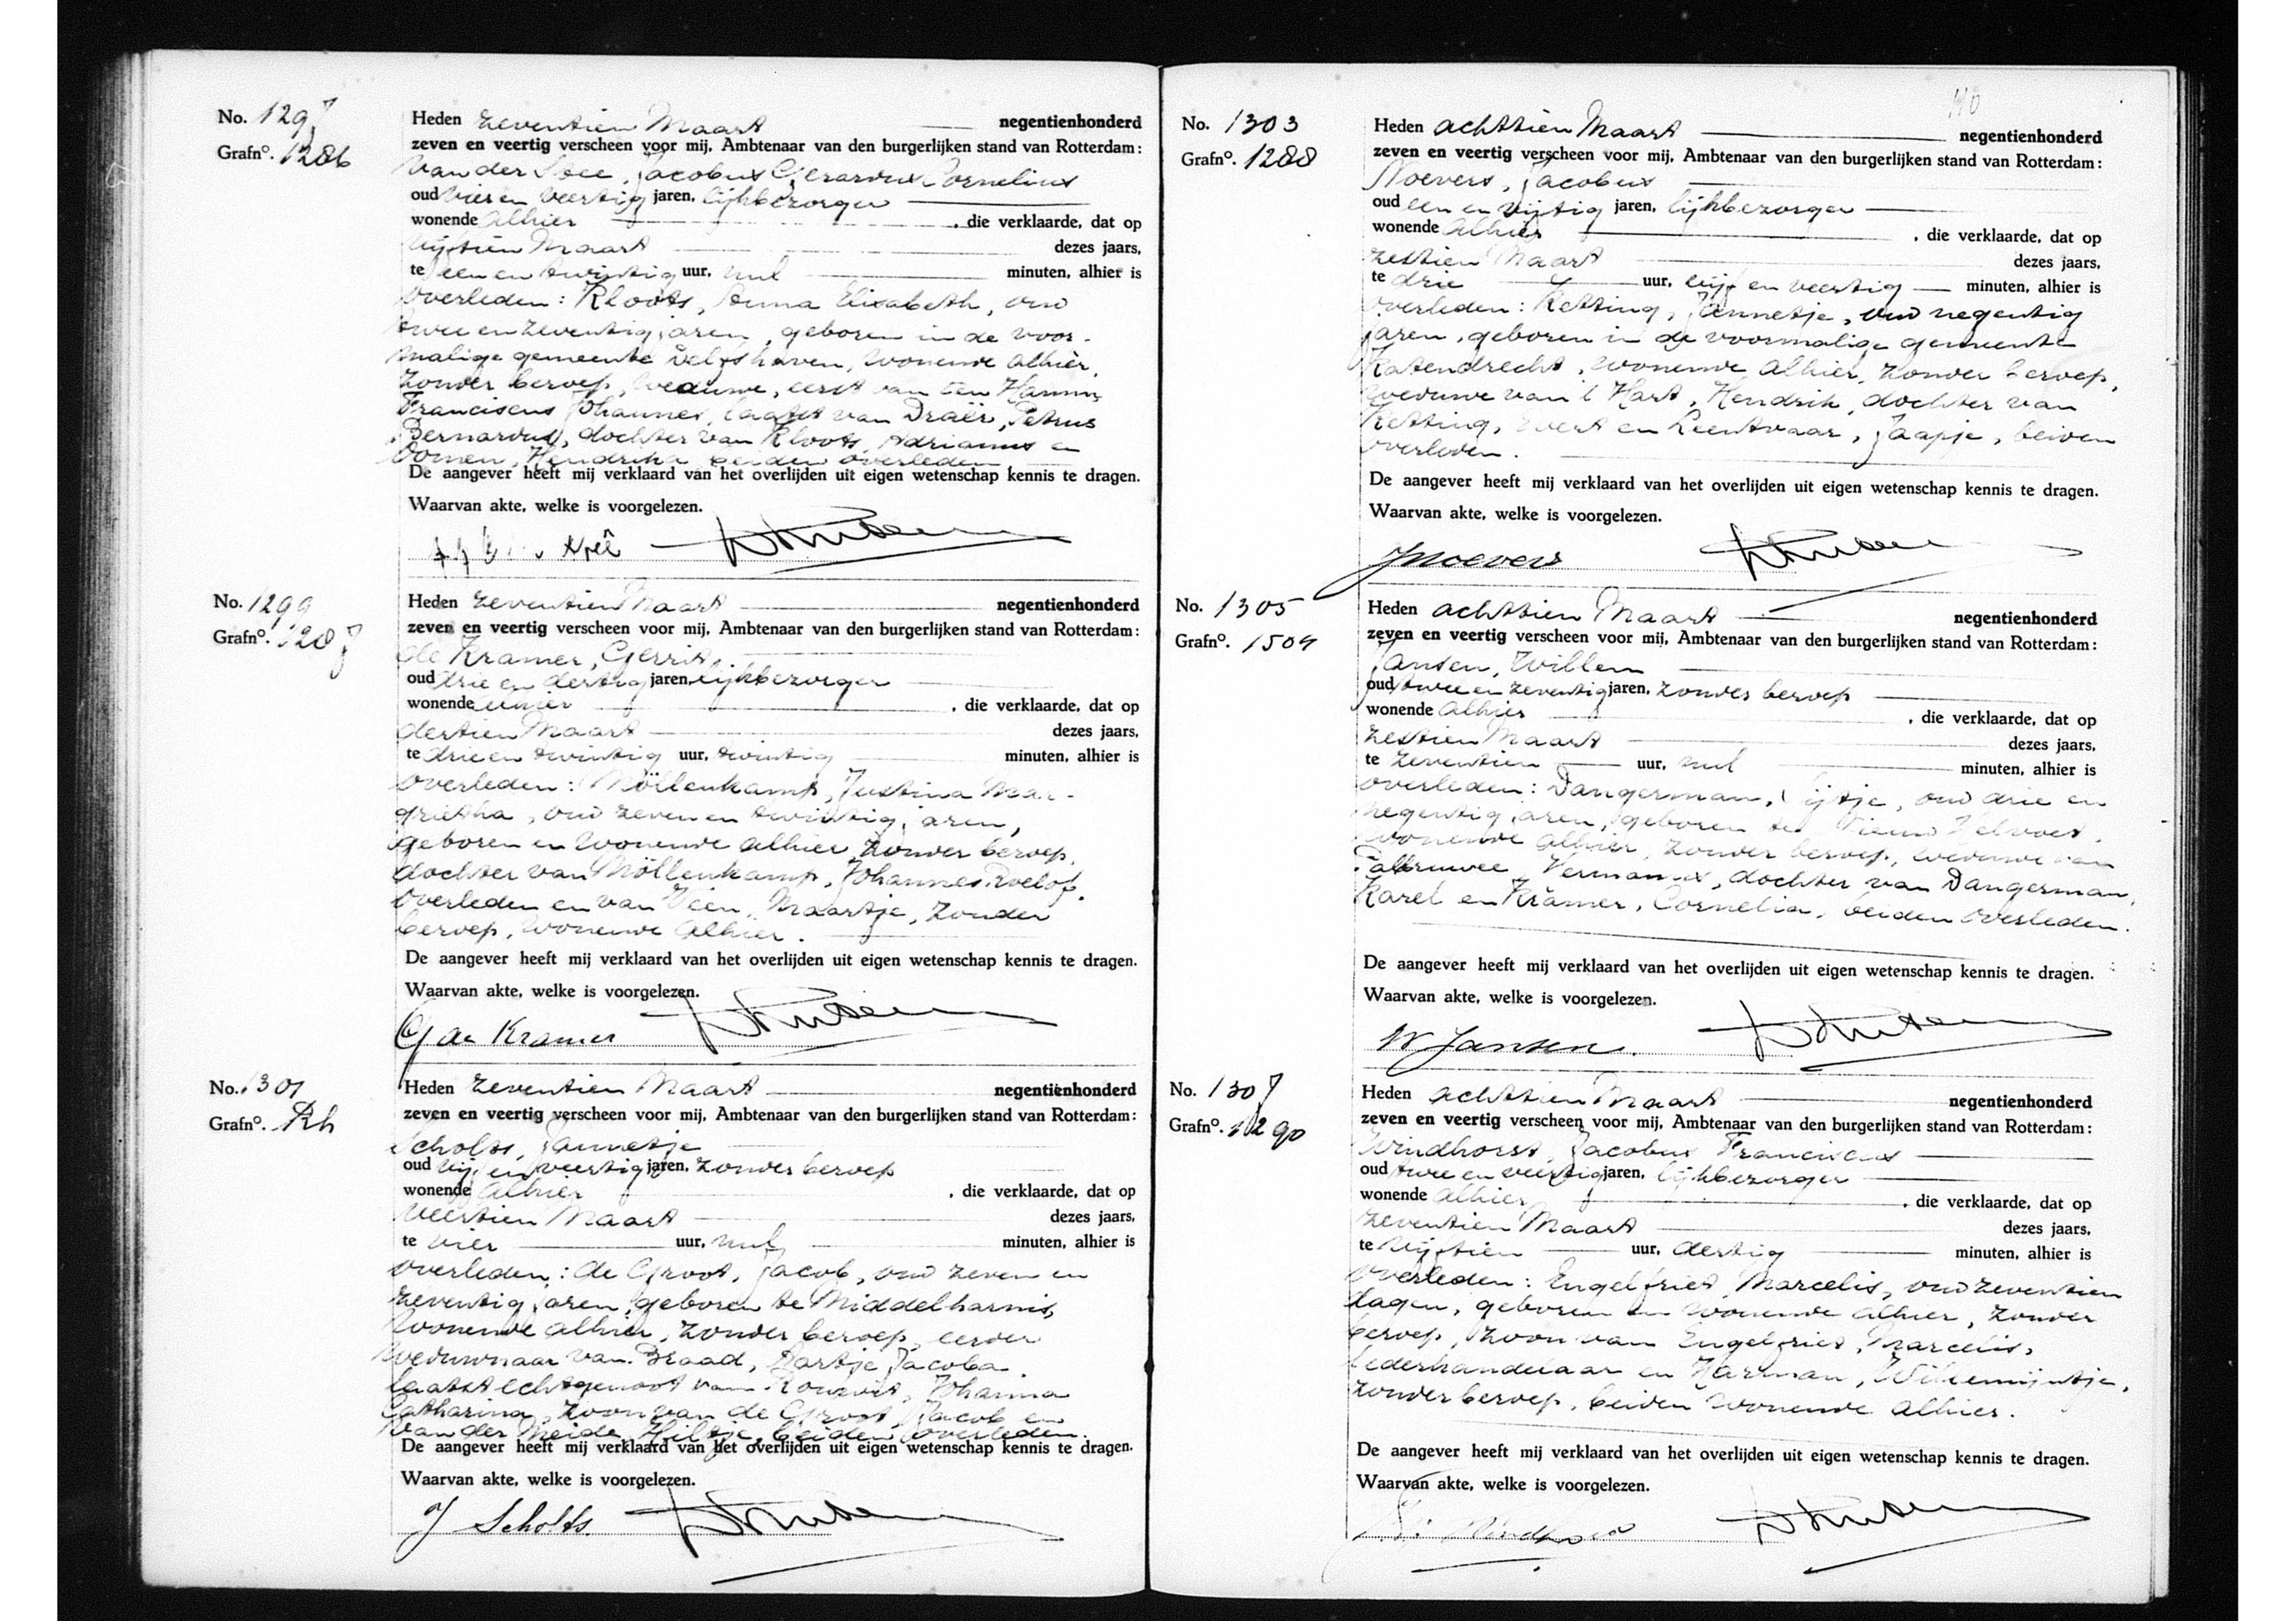 No. 1297
Grafno. 1286
Heden zeventien Maart negentienhonderd
zeven en veertig verscheen voor mij, Ambtenaar van den burgerlijken stand van Rotterdam:
van der Jacobus Gerardus Cornelius
oud vier en veertig jaren, lijkbezorger
wonende alhier , die verklaarde, dat op
vijftien Maart dezes jaars,
te een en twintig uur, nul minuten, alhier is
overleden: Kloots, Anna Elisabeth, oud
twee en zeventig jaren, geboren in de voor-
malige gemeente Delfshaven, wonende alhier,
zonder beroep, weduwe, eerst van ten Hamm,
Franciscus Johannes, laatst van Draër, Petrus
Bernardus, dochter van Kloots, Adrianus en
Hendrika beiden overleden
De aangever heeft mij verklaard van het overlijden uit eigen wetenschap kennis te dragen.
Waarvan akte, welke is voorgelezen.
No. 1299
Grafno. 1287
Heden zeventien Maart negentienhonderd
zeven en veertig verscheen voor mij, Ambtenaar van den burgerlijken stand van Rotterdam:
de Kramer, Gerrit,
oud drie en dertig jaren, lijkbezorger
wonende alhier , die verklaarde, dat op
dertien Maart dezes jaars,
te drie en twintig uur, twintig minuten, alhier is
overleden: Möllenkamp, Justina Mar-
gretha, oud zeven en twintig jaren,
geboren en wonende alhier, zonder beroep,
dochter van Möllenkamp, Johannes Roelof,
overleden en van Veen, Maartje, zonder
beroep, wonende alhier.
De aangever heeft mij verklaard van het overlijden uit eigen wetenschap kennis te dragen.
Waarvan akte, welke is voorgelezen.
G de Kramer
No. 1301
Grafno. Rh
Heden zeventien Maart negentienhonderd
zeven en veertig verscheen voor mij, Ambtenaar van den burgerlijken stand van Rotterdam:
Scholts, Jannetje
oud vijf en veertig jaren, zonder beroep
wonende alhier , die verklaarde, dat op
veertien Maart dezes jaars,
te vier uur, nul minuten, alhier is
overleden: de Groot, Jacob, oud zeven en
zeventig jaren, geboren te Middelharnis,
wonende alhier, zonder beroep, eerder
weduwnaar van Braad, Jacoba,
laatst echtgenoot van Johanna
Catharina, zoon van de Groot, Jacob en
van der Meide, Hiltje, beiden overleden.
De aangever heeft mij verklaard van het overlijden uit eigen wetenschap kennis te dragen.
Waarvan akte, welke is voorgelezen.
J Scholts.
No. 1303
Grafno. 1288
Heden achttien Maart negentienhonderd
zeven en veertig verscheen voor mij, Ambtenaar van den burgerlijken stand van Rotterdam:
Moevers, Jacobus
oud een en vijftig jaren, lijkbezorger
wonende alhier , die verklaarde, dat op
zestien Maart dezes jaars,
te drie uur, vijf en veertig minuten, alhier is
overleden: Ketting, Jannetje, oud negentig
jaren, geboren in de voormalige gemeente
Katendrecht, wonende alhier, zonder beroep,
weduwe van 't Hart, Hendrik, dochter van
Ketting, Evert en Leentvaar, Jaapje, beiden
overleden.
De aangever heeft mij verklaard van het overlijden uit eigen wetenschap kennis te dragen.
Waarvan akte, welke is voorgelezen.
JMoevers
No. 1305
Grafno. 1504
Heden achttien Maart negentienhonderd
zeven en veertig verscheen voor mij, Ambtenaar van den burgerlijken stand van Rotterdam:
Jansen, Willem
oud twee en zeventig jaren, zonder beroep
wonende alhier , die verklaarde, dat op
zestien Maart dezes jaars,
te zeventien uur, nul minuten, alhier is
overleden: Dangerman, oud drie en
negentig jaren, geboren te Nieuw Helvoet,
wonende alhier, zonder beroep, weduwe van
dochter van Dangerman,
Karel en Krämer, Cornelia, beiden overleden.
De aangever heeft mij verklaard van het overlijden uit eigen wetenschap kennis te dragen.
Waarvan akte, welke is voorgelezen.
W Jansen.
No. 1307
Grafno. 1290
Heden achttien Maart negentienhonderd
zeven en veertig verscheen voor mij, Ambtenaar van den burgerlijken stand van Rotterdam:
Windhorst, Jacobus Franciscus
oud twee en veertig jaren, lijkbezorger
wonende alhier , die verklaarde, dat op
zeventien Maart dezes jaars,
te vijftien uur, dertig minuten, alhier is
overleden: Engelfriet, Marcelis, oud zeventien
dagen, geboren en wonende alhier, zonder
beroep, zoon van Engelfriet, Marcelis,
lederhandelaar en Harman, Willemijntje,
zonder beroep, beiden wonende alhier.
De aangever heeft mij verklaard van het overlijden uit eigen wetenschap kennis te dragen.
Waarvan akte, welke is voorgelezen.